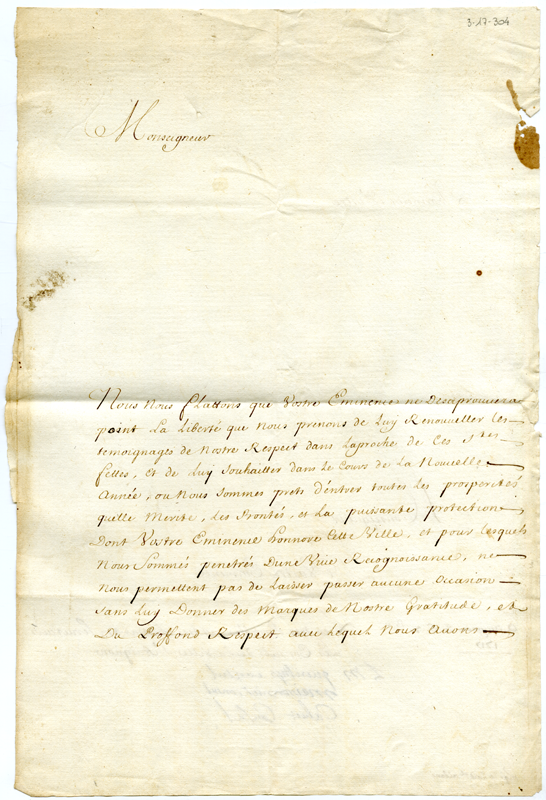 3-17-304
Monseigneur
Nous Nous flattons que Vostre Eminence ne Desaprouvera
point La Liberté que Nous prenons de Luy Renouveller les
temoignages de Nostre Respect dans Laproche de Ces Stes
fettes, et de Luy Souhaitter dans le Cours de La Nouvelle
Année, ou Nous Sommes prets d'éntrer toutes les prosperités
quelle Merite, Les Bontés, et La puissante protection
Dont Vostre Eminence honnore Cette Ville, et pour lesquels
Nous Sommés penetrés Dune Vive Recognoissance, ne
Nous permettent pas de Laisser passer aucune Occasion
Sans Luy Donner des Marques de Nostre Gratitude, et
Du Proffond Respect avec Lequel Nous Avons